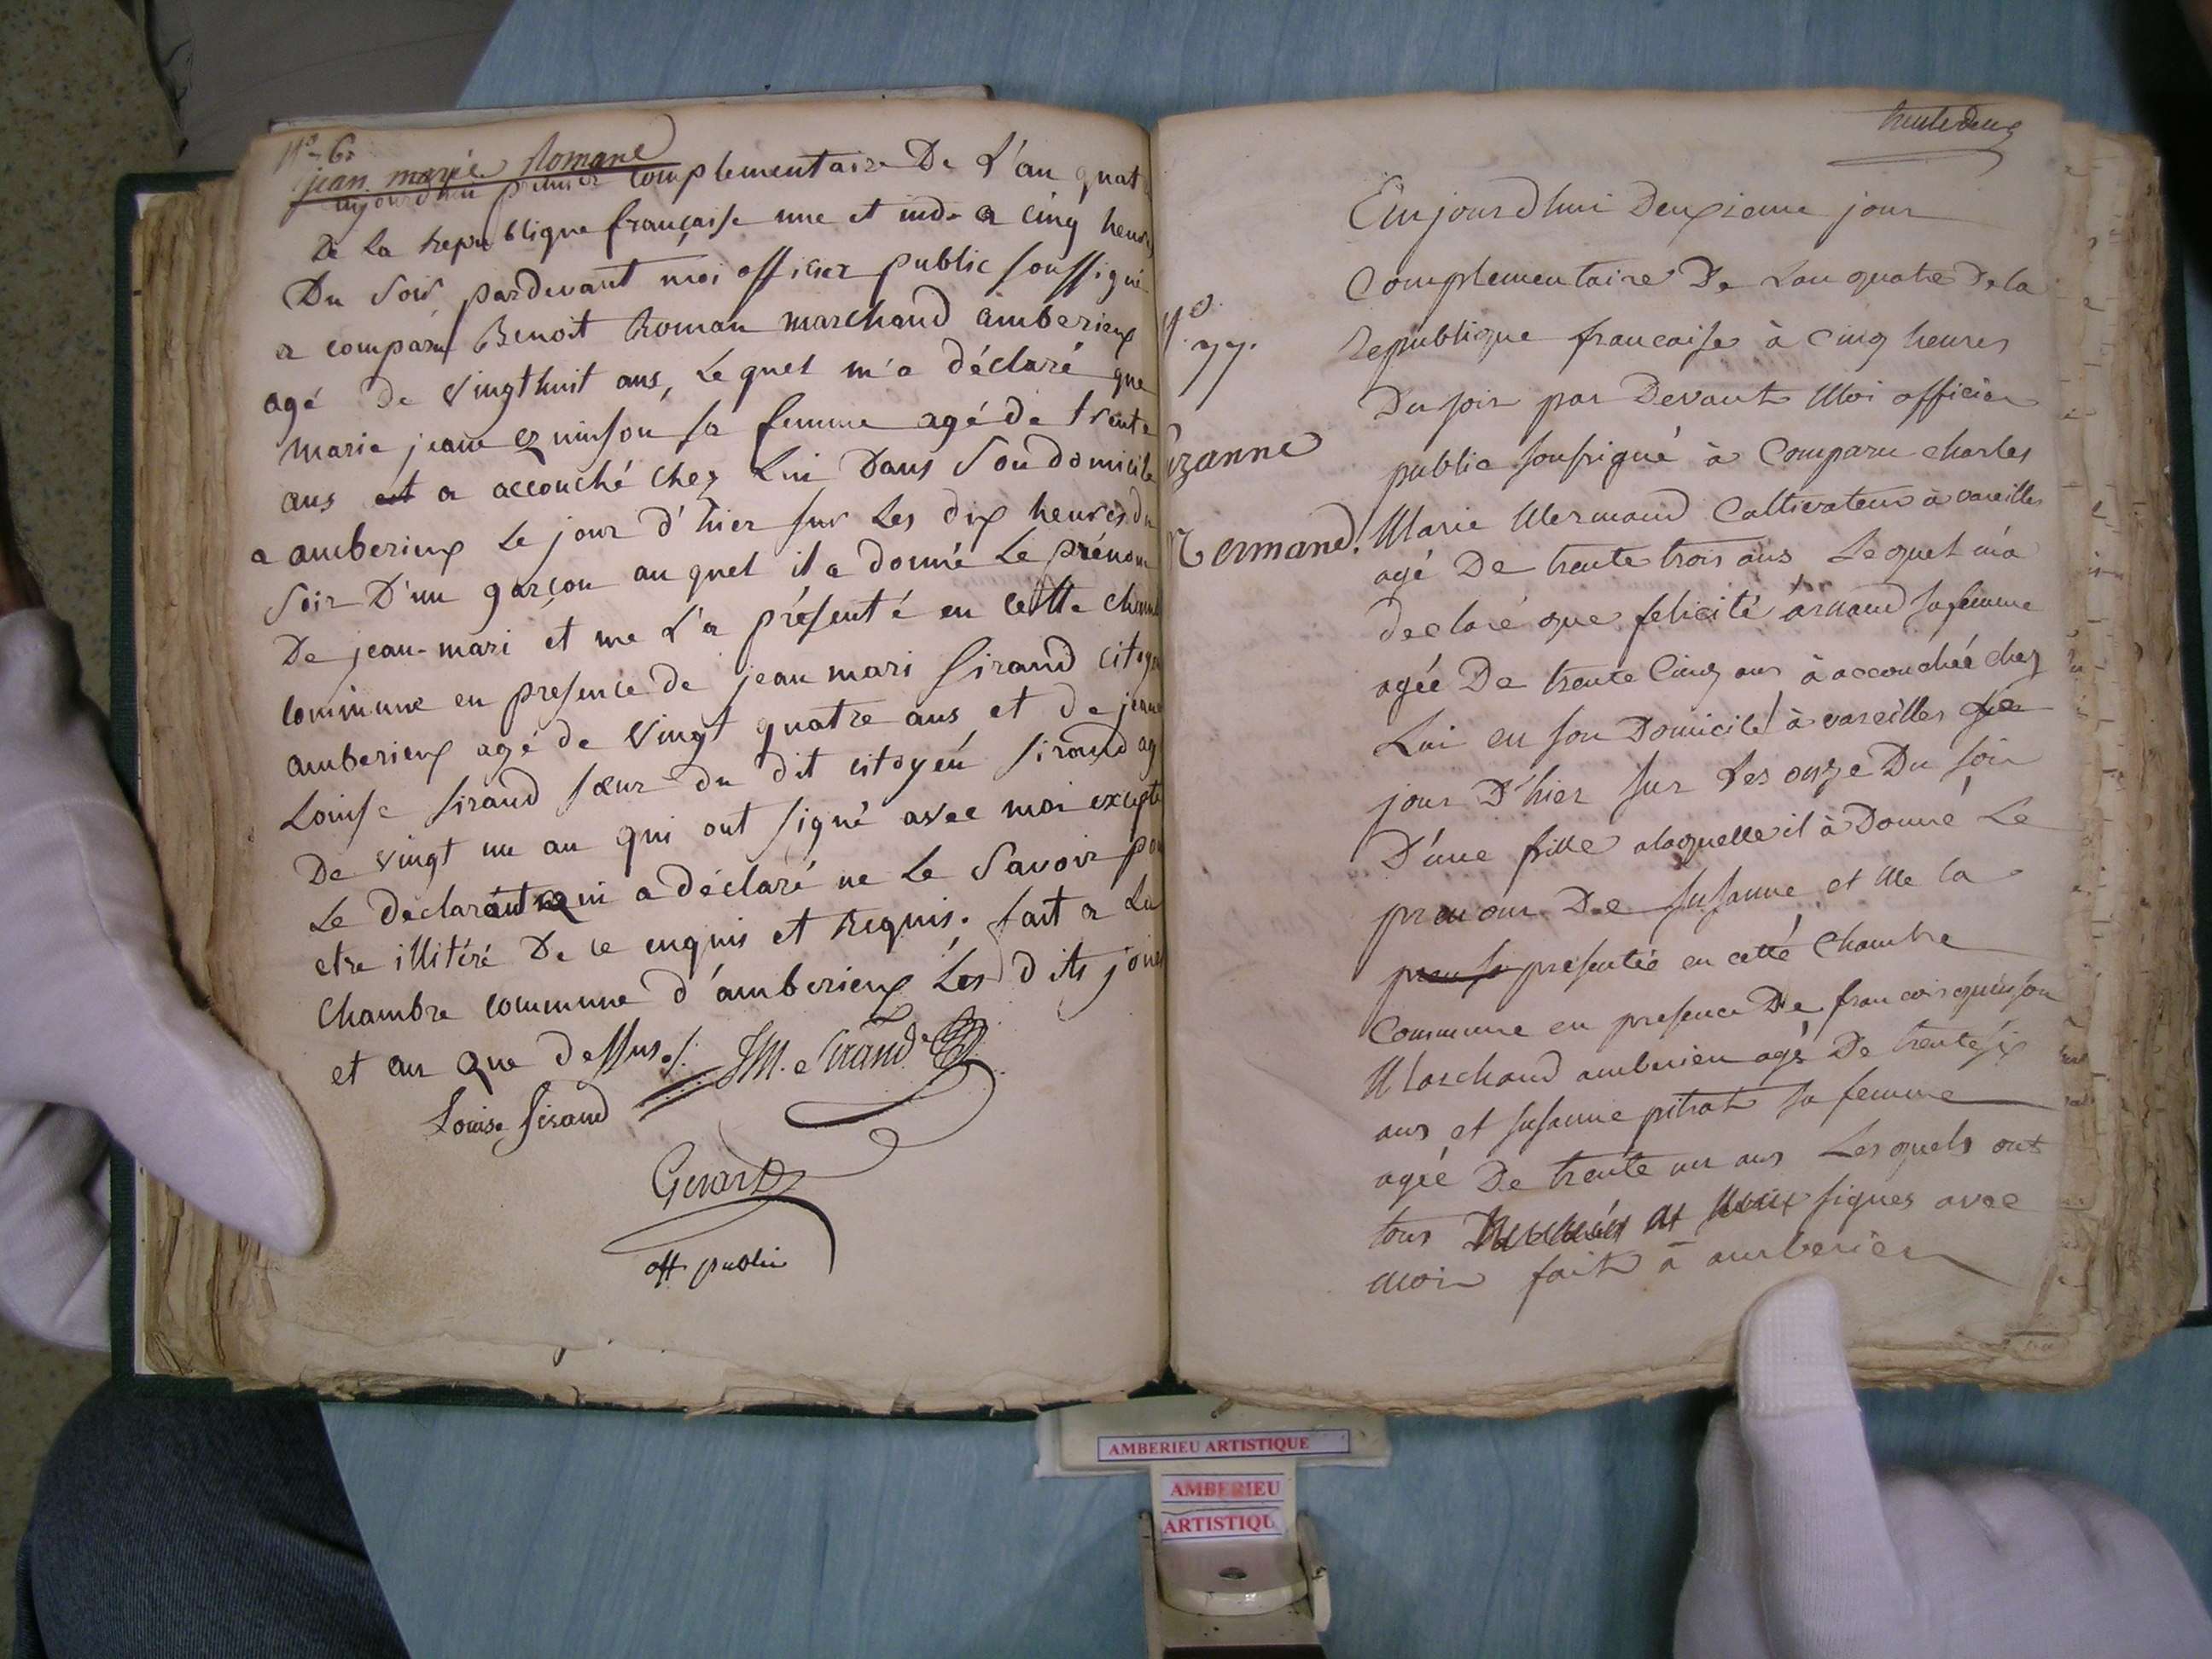 N° 6.
jean marie Romane
aujourdhui premier complementaire De L'an quat
De La republique françaisse une et ind. a cinq heures
Du Soir pardevant moi officier public soussigné
a comparu Benoit Roman marchand amberieux
agé de vingthuit ans, Le quel m'a déclaré que
marie jeane quinson sa femme agé de trente
ans est a accouché chez Lui Dans Son domicile
a amberieux Le jour d'hier sur Les dix heures du
Soir D'un garçon au quel il a donné Le prénom
De jean-mari et me L'a présenté en cette chamb
commune en presence de jean mari Sirand citoyen
amberieux agé de vingt quatre ans et de jeane
Louise Sirand sœur du dit citoyén Sirand ag
De vingt un an qui ont signé avec moi excepté
Le déclarant qui a déclaré ne Le Savoir po
etre illitéré De ce enquis et requis. fait a La
Chambre commune d'amberieux Les dits jour
et an que dessus ./. JM. Sirand
Louise Sirand
Gerard
off public
trente deux
N°
77.
uzanne
Vermand.
Aujourdhui Deuxieme jour
Complementaire De Lan quatre De la
republique francaise à Cinq heures
Du soir par Devant Moi officier
public sousigné à Comparu charles
Marie Mermand Cultivateur à vareilles
agé De trente trois ans Le quel m'a
declaré que felicité arnaud sa femme
agée De trente Cinq ans à accouchée chez
Lui en son Domicile à vareilles
jour D'hier sur Les onze Du soir
D'une fille alaquelle il à Donné Le
prenom De susanne et Me la
presentée en cette Chambre
Commune en presence De francois quinson
Marchand amberieu agé De trente six
ans et susanne pitrat sa femme
agée De trente un ans Les quels ont
tous signes avec
moi fait à amberieu
AMBERIEU ARTISTIQUE
AMBERIEU
ARTISTIQU